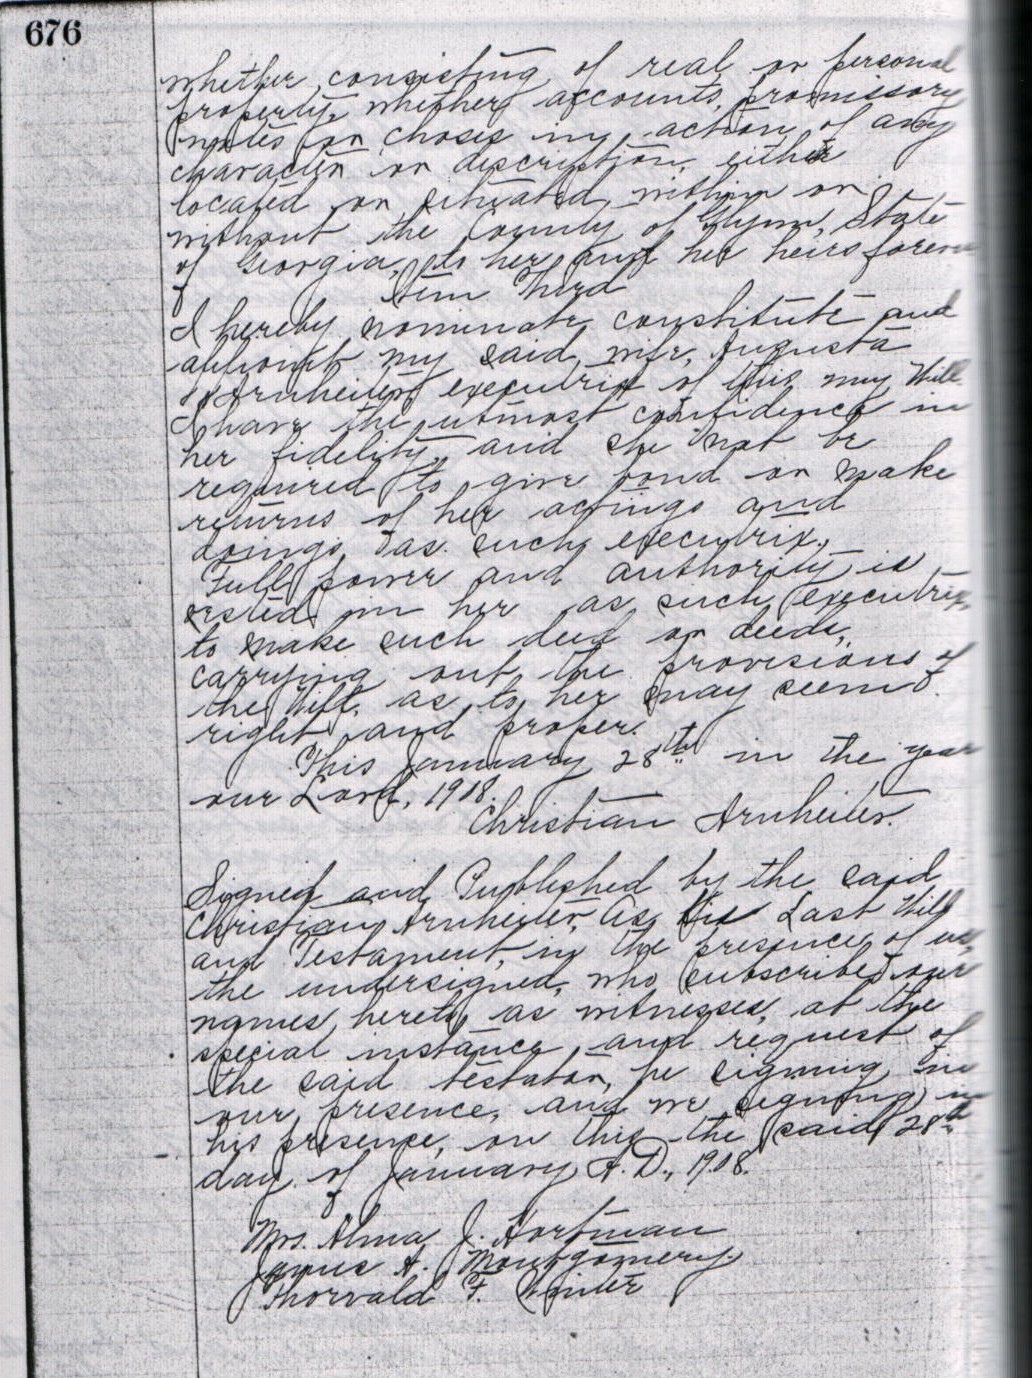 676
whether consisting of real or personal
property, whether accounts, promissory
notes or choses in action of any
character or description, either
located or situated within or
without the County of Glynn, State
of Georgia, to her and her heirs forever
Item Third
I hereby nominate constitute and
appoint my said wife, Augusta
Arnheiter executrix of this my Will
I have the utmost confidence in
her fidelity, and she not be
required to give bond or make
returns of her actings and
doings, as such executrix.
Full power and authority is
vested in her as such executrix,
to make such deed or deeds,
carrying out the provisions of
the Will, as to her may seem
right and proper.
This January 28th in the year
our Lord, 1918.
Christian Arnheiter.
Signed and Published by the said
Christian Arnheiter, As his Last Will
and Testament, in the presence of us,
the undersigned, who subscribed our
names hereto as witnesses, at the
special instance and request of
the said testator, he signing in
our presence, and we signing in
his presence, on this the said 28th
day of January A.D., 1918.
Mrs. Alma J. Hortman
James A. Montgomery.
Thorvald F. Winter